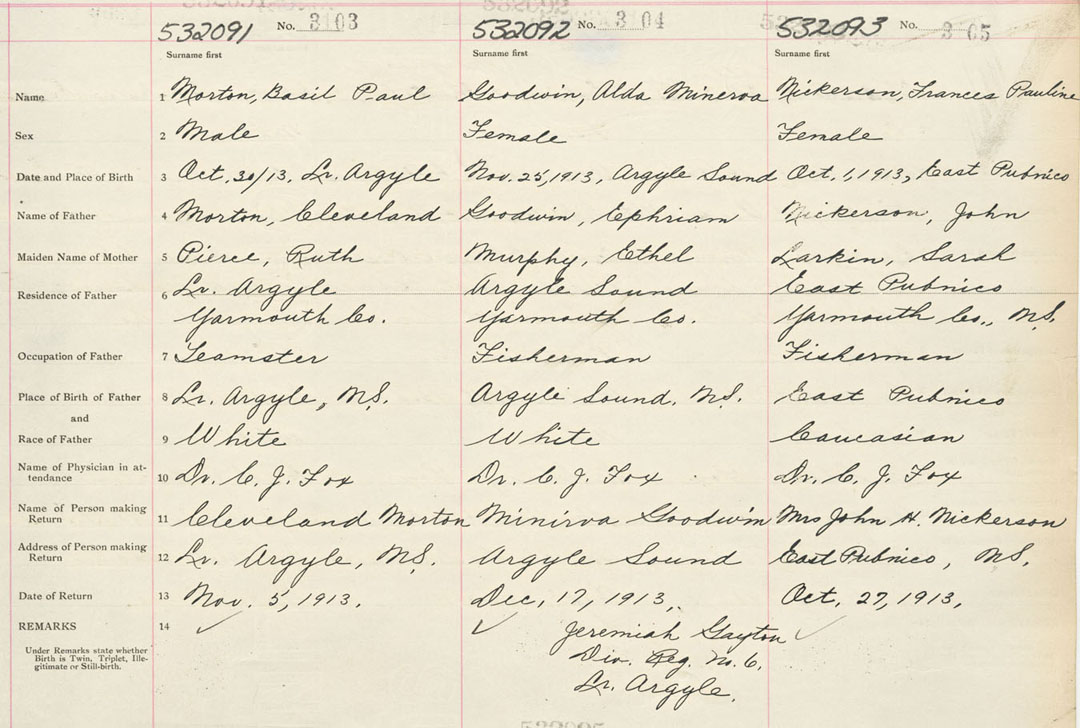 532091 No. 3 03 532092 No. 3 04 532093 No. 3 05
Surname first Surname first Surname first
Name 1 Morton, Basil Paul Goodwin, Alda Minerva Nickerson, Frances Pauline
Sex 2 Male Female Female
Date and Place of Birth 3 Oct. 30/13, Lr. Argyle Nov. 25, 1913, Argyle Sound Oct. 1, 1913, East Pubnico
Name of Father 4 Morton, Cleveland Goodwin, Ephriam Nickerson, John
Maiden Name of Mother 5 Pierce, Ruth Murphy, Ethel Larkin, Sarah
Residence of Father 6 Lr. Argyle Argyle Sound East Pubnico
Yarmouth Co. Yarmouth Co. Yarmouth Co., N.S.
Occupation of Father 7 Teamster Fisherman Fisherman
Place of Birth of Father 8 Lr. Argyle, N.S. Argyle Sound, N.S. East Pubnico
and
Race of Father 9 White White Caucasian
Name of Physician in at-
tendance 10 Dr. C. J. Fox Dr. C. J. Fox Dr. C. J. Fox
Name of Person making
Return 11 Cleveland Morton Minirva Goodwin Mrs John H. Nickerson
Address of Person making
Return 12 Lr. Argyle, N.S. Argyle Sound East Pubnico, N.S.
Date of Return 13 Nov. 5, 1913. Dec. 17, 1913. Oct. 27, 1913.
REMARKS 14 Jeremiah Gayton
Under Remarks state whether
Birth is Twin, Triplet, Ille-
gitimate or Still-birth.
Div. Reg. No. 6.
Lr. Argyle.